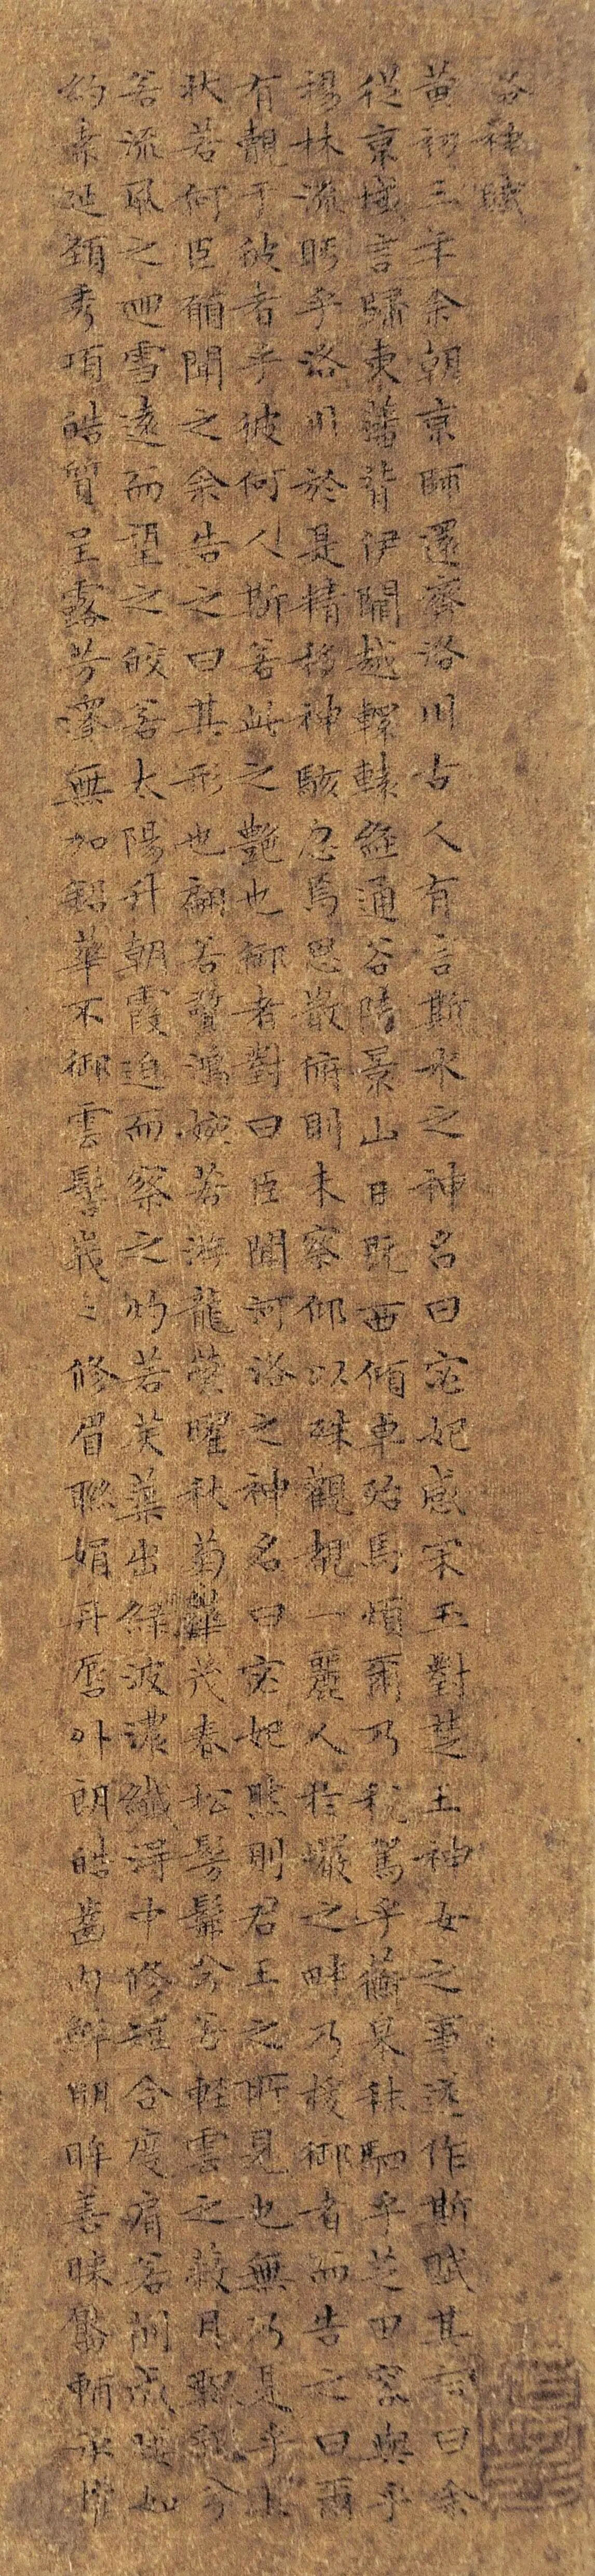 洛神賦
黃初三年余朝京師還濟洛川古人有言斯水之神名曰宓妃感宋玉對楚王神女之事遂作斯賦其詞曰余
從京域言歸東藩背伊闕越轘轅經通谷陵景山日既西傾車殆馬煩爾乃稅駕乎蘅皋秣駟乎芝田容與乎
楊林流眄乎洛川於是精移神駭忽焉思散俯則未察仰以殊觀覩一麗人於巖之畔乃援御者而告之曰爾
有覿于彼者乎彼何人斯若此之艷也御者對曰臣聞河洛之神名曰宓妃然則君王之所見也無乃是乎其
狀若何臣願聞之余告之曰其形也翩若驚鴻婉若游龍榮曜秋菊華茂春松髣髴兮若輕雲之蔽月飄飄兮
若流風之迴雪遠而望之皎若太陽升朝霞迫而察之灼若芙蕖出綠波濃纖得中修短合度肩若削成腰如
約素延頸秀項皓質呈露芳澤無加鉛華不御雲髻峩〻修眉聯娟丹脣外朗皓齒內鮮明眸善睞靨輔承權